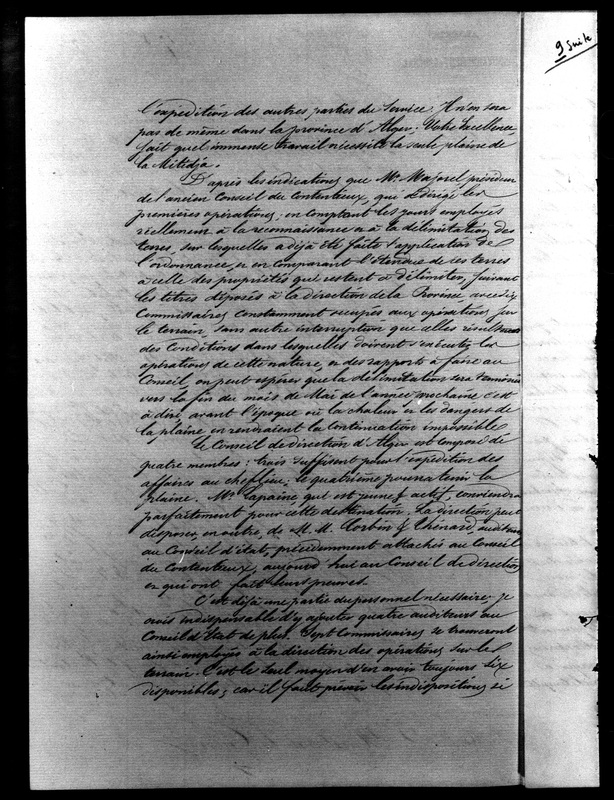 9 Suite
l'expédition des autres parties du service. Il n'en sera
pas de même dans la province d'Alger: Votre Excellence
sait quel immense travail nécessite la seule plaine de
la Mitidja.
D'après les indications que Mr. Majorel président
de l'ancien Conseil du Contentieux, qui a dirigé les
premières opérations, en comptant les jours employés
réellement à la reconnaissance et à la délimitation des
terres, sur lesquelles a déjà été faite l'application de
l'ordonnance, et en comparant l'étendue de ces terres
à celle des propriétés qui restent à délimiter, suivant
les titres déposés à la direction de la Province, avec dix
Commissaires constamment occupés aux opérations sur
le terrain, sans autre interruption que celles résultant
des Conditions dans lesquelles doivent s'exécuter les
opérations de cette nature, et des rapports à faire au
Conseil, on peut espérer que la délimitation sera terminée
vers la fin du mois de Mai de l'année prochaine c'est
à dire avant l'époque où la chaleur et les dangers de
la plaine en rendraient la continuation impossible
Le Conseil de direction d'Alger est composé de
quatre membres: trois suffisent pour l'expédition des
affaires au chef lieu, le quatrième pourra tenir la
plaine. Mr. Lapaine qui est jeune & actif, conviendra
parfaitement pour cette destination. La direction peut
disposer, en outre, de M. M. Corbin & Thénard, auditeurs
au Conseil d'état, précédemment attachés au Conseil
du Contentieux, aujourd'hui au Conseil de direction
et qui ont fait leurs preuves.
C'est déjà une partie du personnel nécessaire; je
crois indispensable d'y ajouter quatre auditeurs au
Conseil d'état de plus. Sept Commissaires se trouveront
ainsi employés à la direction des opérations sur le
terrain. C'est le seul moyen d'en avoir toujours six
disponibles; car il faut prévoir les indispositions, si